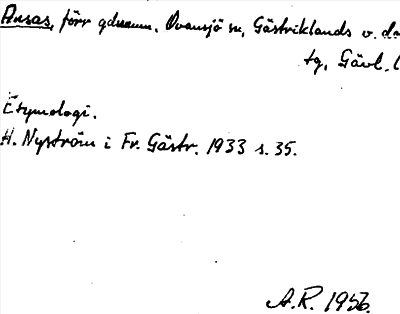 Ansas, förr gdnamn. Ovansjö sn, Gästriklands v. da
tg, Gävl. l
Etymologi.
H. Nyström i Fr. Gästr. 1933 s. 35.
A.R. 1956.